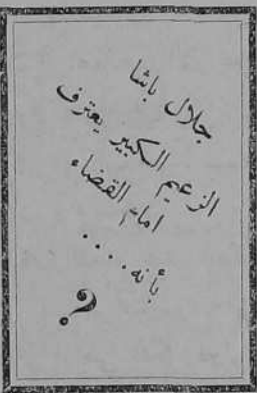 جلال باشا
الزعيم الكبير يعترف
امام القضاء
بأنه . . . .
؟